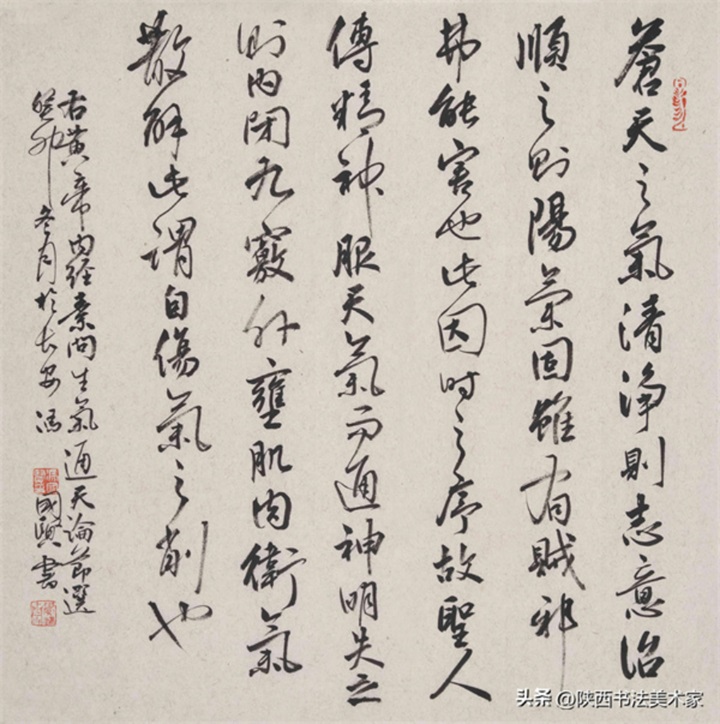 蒼天之氣清淨則志意治
順之則陽氣固雖有賊邪
弗能害也此因時之序故聖人
傳精神服天氣而通神明失之
則內閉九竅外壅肌肉衛氣
散解此謂自傷氣之削也
右黃帝內經素問生氣通天論節選
癸卯冬月於長安馮
國賢書
头条 @陕西书法美术家